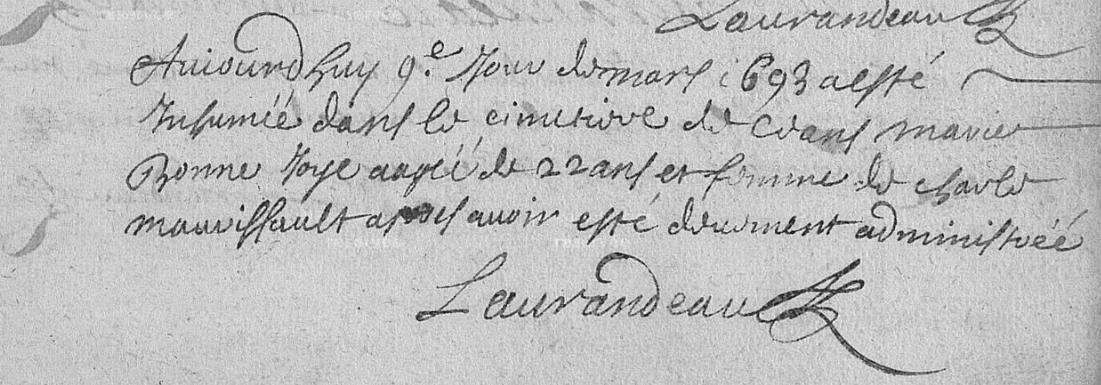 Laurandeau
Aujourd huy 9.e Jour de mars 1693 a esté
Inhumeé dans le cimetiere de Crans marie
Bonne voye aageé de 22 ans et femme de charle
mauvissault apres avoir esté deument administreé
Laurandeau